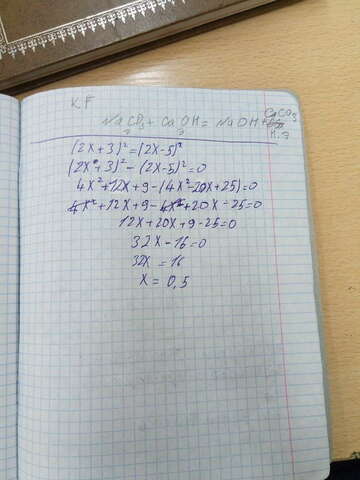 KF
Na₂CO₃ + CaOH₂ = NaOH + CaCO₃
(2x+3)² = (2x-5)²
(2x+3)² - (2x-5)² = 0
4x² + 12x + 9 - (4x² - 20x + 25) = 0
4x² + 12x + 9 - 4x² + 20x - 25 = 0
12x + 20x + 9 - 25 = 0
32x - 16 = 0
32x = 16
x = 0,5